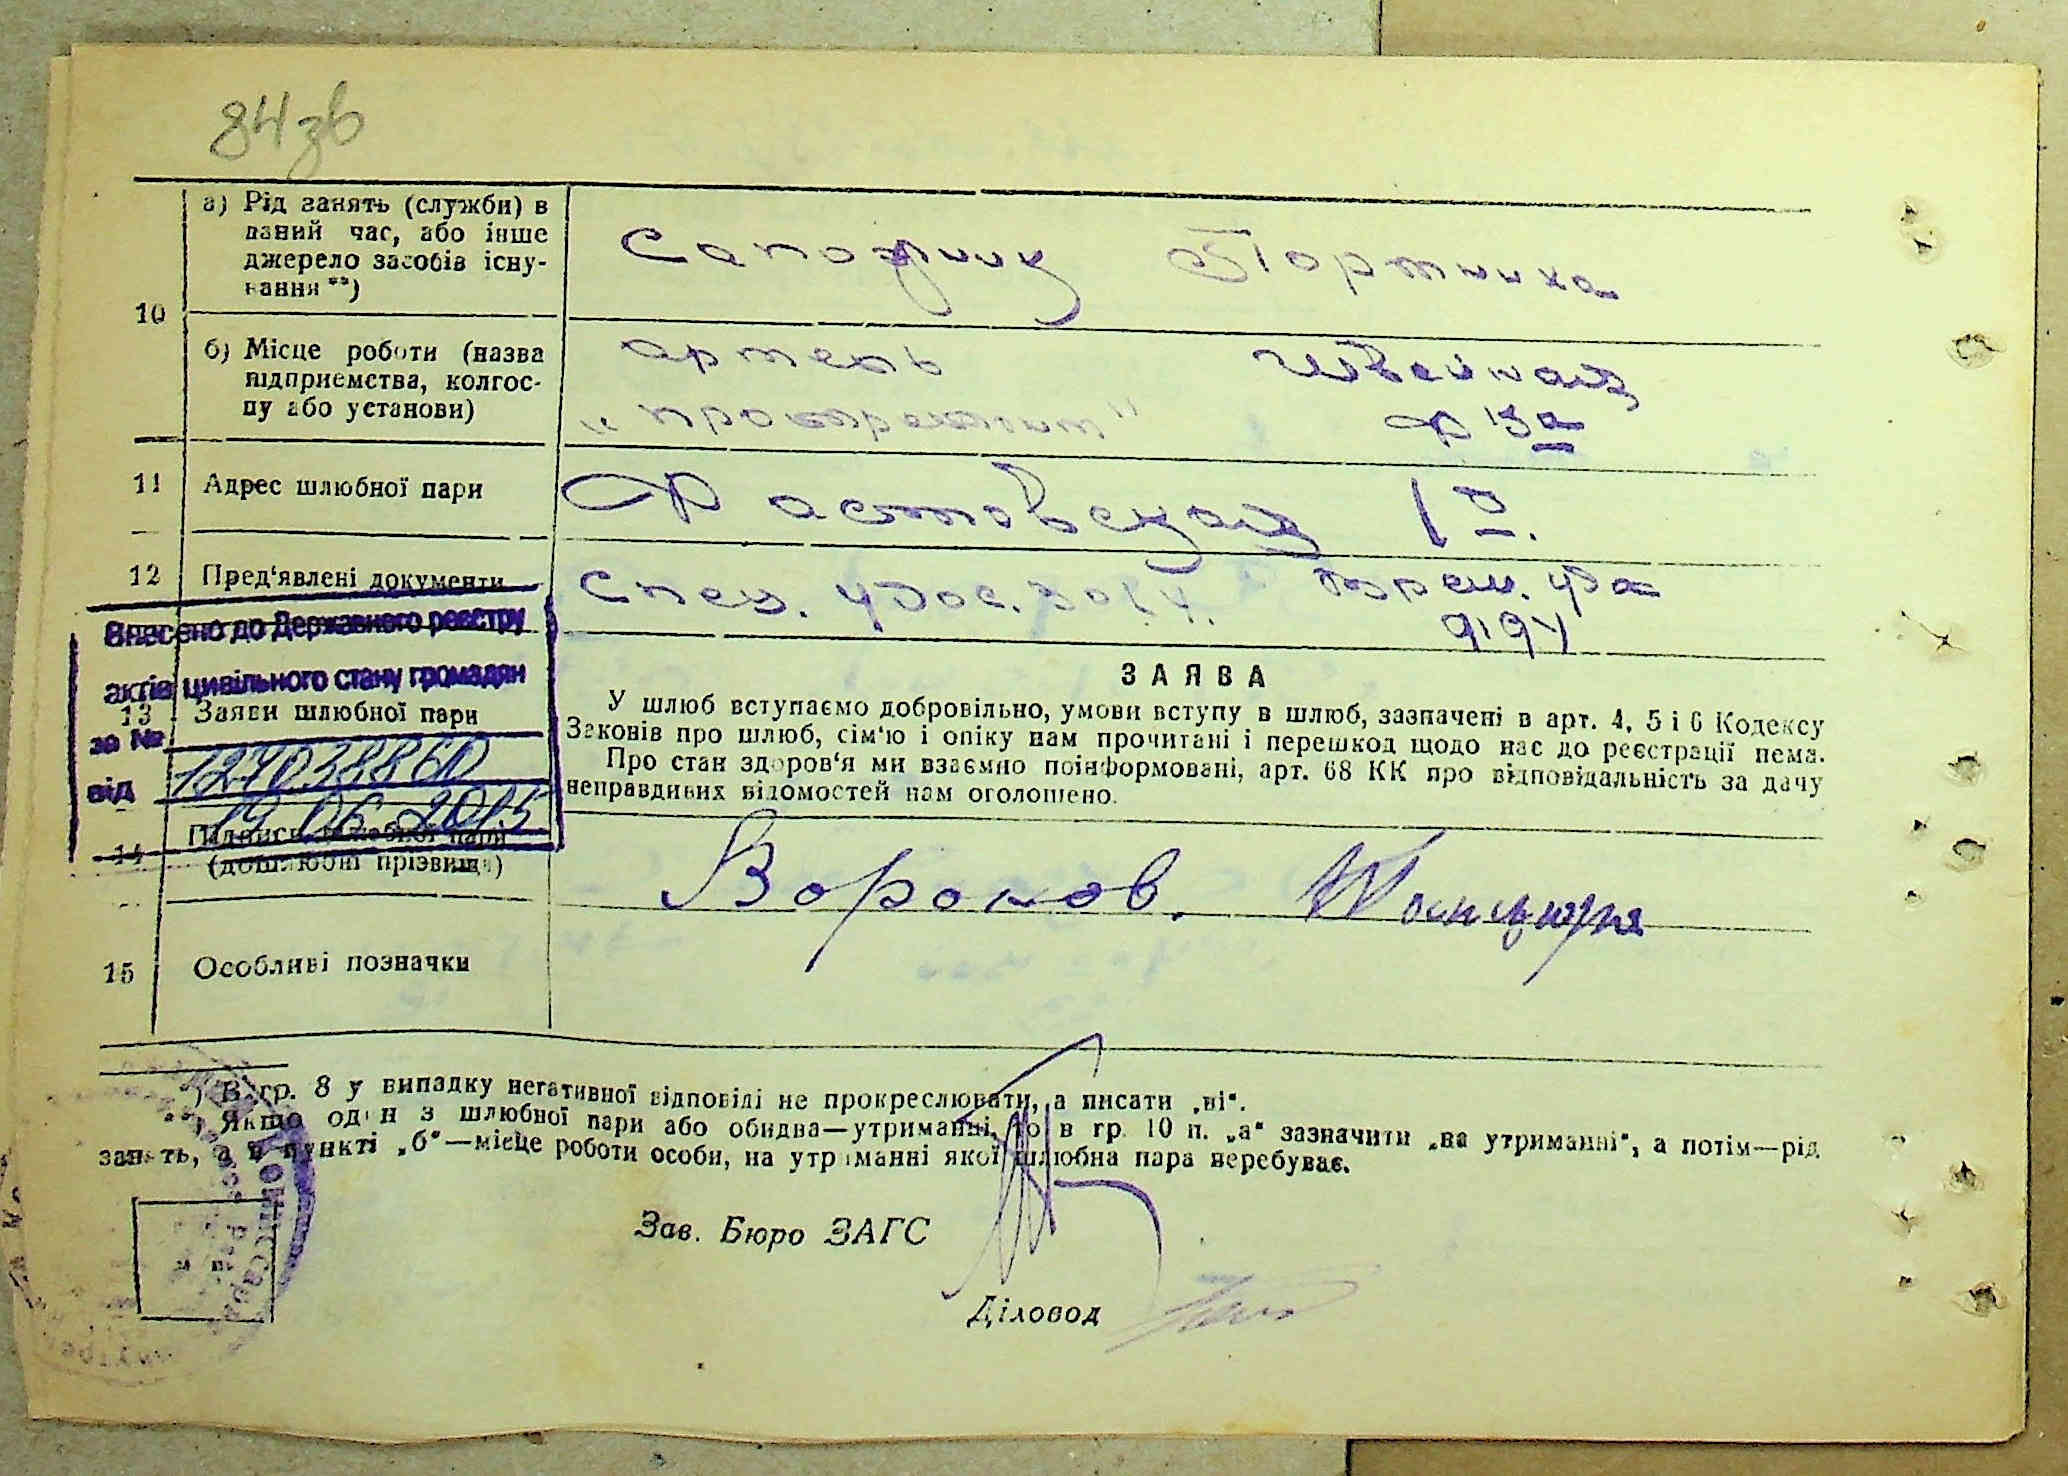 84зв
а) Рід занять (служби) в
даний час, або інше
джерело засобів існу-
вання **)
Сапожник Портниха
10
б) Місце роботи (назва
підприємства, колгос-
пу або установи)
артель Швейная
ф ка
11 Адрес шлюбної пари
Фастовская 1
12 Пред'явлені документи
Спец. удос. Врем. уд
Внесено до Державного реєстру
актів цивільного стану громадян
за № 127038860
від 19.06.2015
13 Заяви шлюбної пари
ЗАЯВА
У шлюб вступаємо добровільно, умови вступу в шлюб, зазначені в арт. 4, 5 і 6 Кодексу
Законів про шлюб, сім'ю і опіку нам прочитані і перешкод щодо нас до реєстрації нема.
Про стан здоров'я ми взаємно поінформовані, арт. 68 КК про відповідальність за дачу
неправдивих відомостей нам оголошено.
14 Підписи шлюбної пари
(дошлюбні прізвища)
Воронов.
15 Особливі позначки
*) В гр. 8 у випадку негативної відповіді не прокреслювати, а писати „ні“.
**) Якщо один з шлюбної пари або обидва—утриманні, то в гр. 10 п. „а“ зазначити „на утриманні“, а потім—рід
занять, а в пункті „б“—місце роботи особи, на утриманні якої шлюбна пара перебуває.
Зав. Бюро ЗАГС
м п
Діловод